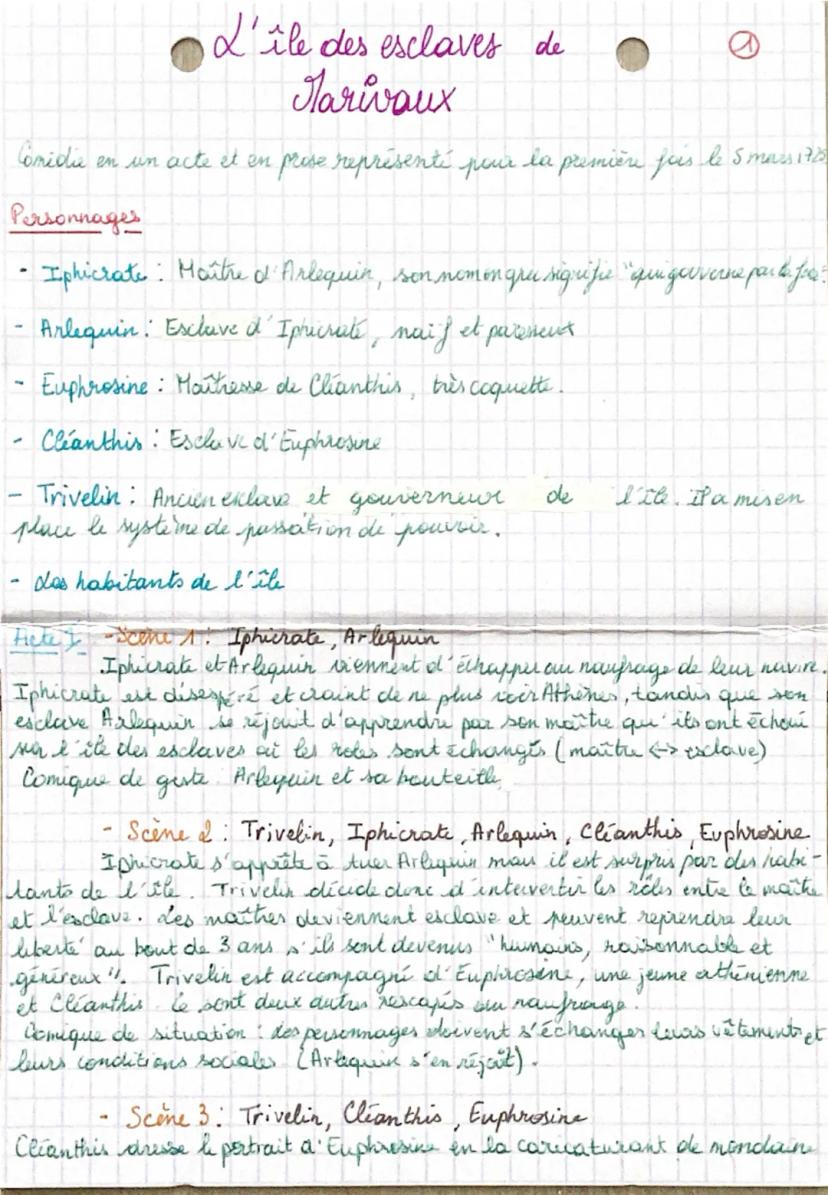 L'île des esclaves de
Marivaux
1
Comédie en un acte et en prose représenté pour la première fois le 5 mars 1725
Personnages
- Iphicrate : Maître d'Arlequin, son nom en grec signifie "qui gouverne par la force".
- Arlequin : Esclave d'Iphicrate, naïf et paresseux
- Euphrosine : Maîtresse de Cléanthis, très coquette.
- Cléanthis : Esclave d'Euphrosine
- Trivelin : Ancien esclave et gouverneur de l'île. Il a mis en
place le système de passation de pouvoir.
- Les habitants de l'île
Acte I - Scène 1 : Iphicrate, Arlequin
Iphicrate et Arlequin viennent d'échapper au naufrage de leur navire.
Iphicrate est désespéré et craint de ne plus voir Athènes, tandis que son
esclave Arlequin se réjouit d'apprendre par son maître qu'ils ont échoué
sur l'île des esclaves où les roles sont échangés (maître <-> esclave)
Comique de geste : Arlequin et sa bouteille
- Scène 2 : Trivelin, Iphicrate, Arlequin, Cléanthis, Euphrosine
Iphicrate s'apprête à tuer Arlequin mais il est surpris par des habi-
tants de l'île. Trivelin décide donc d'intervertir les rôles entre le maître
et l'esclave. Les maîtres deviennent esclave et peuvent reprendre leur
liberté au bout de 3 ans s'ils sont devenus "humains, raisonnable et
généreux". Trivelin est accompagné d'Euphrosine, une jeune athénienne
et Cléanthis. Ce sont deux autres rescapés au naufrage.
Comique de situation : les personnages doivent s'échanger leurs vêtements et
leurs conditions sociales (Arlequin s'en réjouit).
- Scène 3 : Trivelin, Cléanthis, Euphrosine
Cléanthis dresse le portrait d'Euphrosine en la caricaturant de mondaine